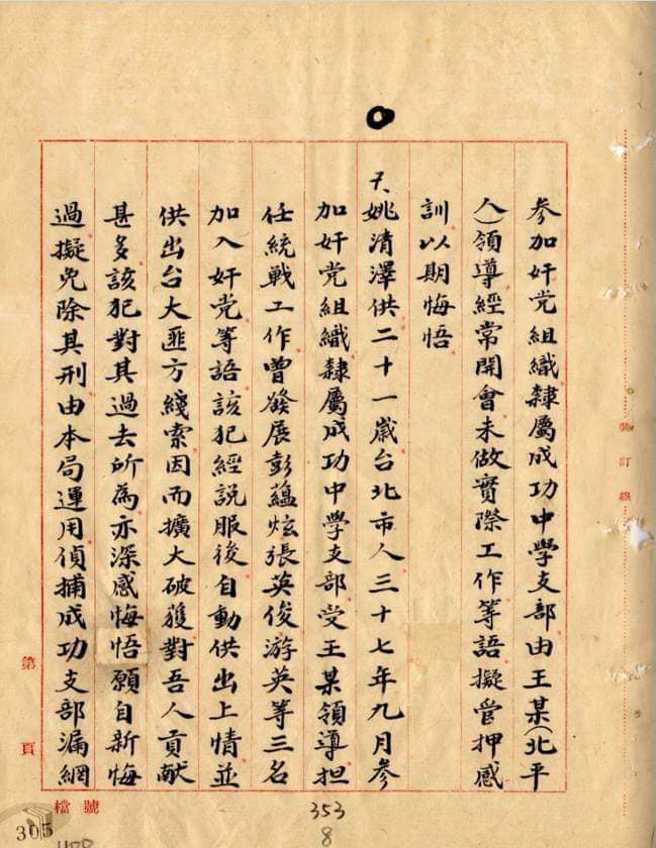 參加奸党組織隸屬成功中學支部由王某(北平
人)領導經常開會未做實際工作等語擬管押感
訓以期悔悟
天姚清澤供二十一歲台北市人三十七年九月參
加奸党組織隸屬成功中學支部受王某領導担
任統戰工作曾發展彭蘊炫張英俊游英等三名
加入奸党等語該犯經說服後自動供出上情並
供出台大匪方綫索因而擴大破獲對吾人貢献
甚多該犯對其過去所為亦深感悔悟願自新悔
過擬免除其刑由本局運用偵捕成功支部漏網
訂
線
第 頁
檔號
353
8
305